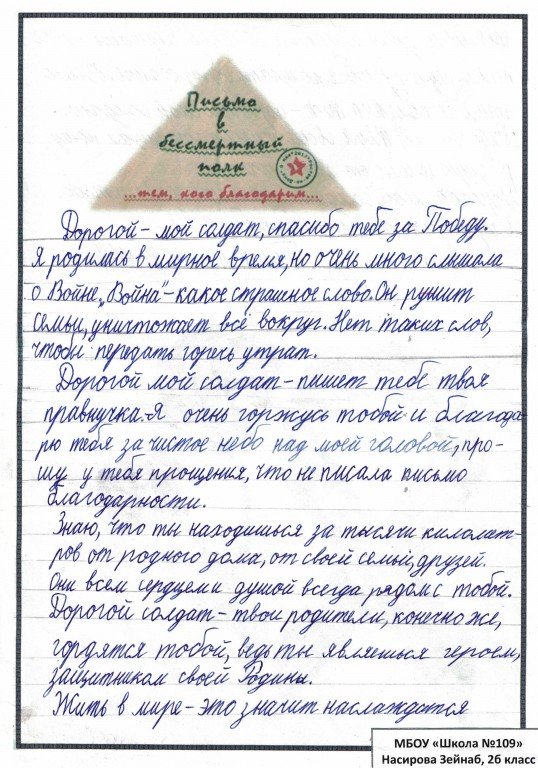 Письмо
в
бессмертный
полк
...тем, кого благодарим...
Дорогой - мой солдат, спасибо тебе за Победу.
Я родилась в мирное время, но очень много слышала
о Войне. „Война" - какое страшное слово. Он рушит
семьи, уничтожает всё вокруг. Нет таких слов,
чтобы передать горечь утрат.
Дорогой мой солдат - пишет тебе твоя
правнучка. Я очень горжусь тобой и благода-
рю тебя за чистое небо над моей головой, про-
шу у тебя прощения, что не писала письмо
благодарности.
Знаю, что ты находишься за тысячи километ-
ров от родного дома, от своей семьи, друзей.
Они всем сердцем и душой всегда рядом с тобой.
Дорогой солдат - твои родители, конечно же,
гордятся тобой, ведь ты являешься героем,
защитником своей Родины.
Жить в мире - это значит наслаждатся
МБОУ «Школа №109»
Насирова Зейнаб, 2б класс